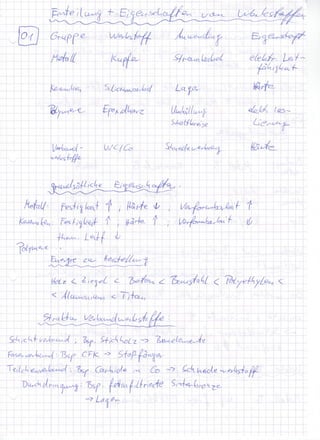 Einteilung + Eigenschaften von Werkstoffen
01 Gruppe Werkstoff Anwendung Eigenschaft
Metall Kupfer Stromkabel elektr. Leit-
fähigkeit
Keramiken Lager Härte
Polymere Epoxidharz Umhüllung elektr. Iso-
lierung
Verbund- WC/Co Schneidewerkzeug Härte
werkstoffe
grundsätzliche Eigenschaften:
Metall: Festigkeit ↑, Härte ↓, Verformbarkeit ↑
Keramiken: Festigkeit ↑, Härte ↑, Verformbarkeit ↓
therm. Leitf ↓
Polymere:
Energie zur Herstellung
Holz < Ziegel < Beton < Baustahl < Polyethylen <
< Aluminium < Titan
Struktur Verbundwerkstoffe:
Schichtverbund: Bsp. Stichholz → Bauelemente
Faserverbund: Bsp CFK → Stoßfänger
Teilchenverbund: Bsp Carbide in Co → Schneidewerkstoff
Durchdringung: Bsp. Sinterbronze
→ Lager